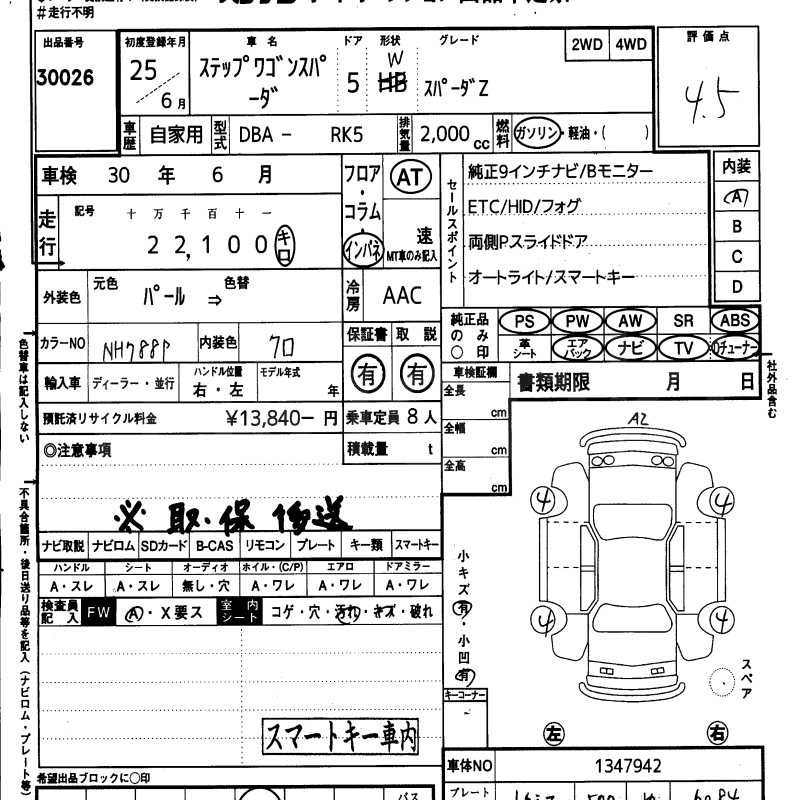 #走行不明
出品番号
30026
初度登録年月
25
6月
車名
ステップワゴンスパ
ーダ
ドア
5
形状
W
HB
グレード
スパーダZ
2WD 4WD
評価点
4.5
車歴
自家用
型式
DBA - RK5
排気量
2,000cc
燃料
ガソリン・軽油・( )
車検 30年 6月
走行
記号
十万千百十一
22,100キロ
フロア・コラム・インパネ
AT
速
MT車のみ記入
セールスポイント
純正9インチナビ/Bモニター
ETC/HID/フォグ
両側Pスライドドア
オートライト/スマートキー
内装
A
B
C
D
外装色
元色
パール
⇒
色替
冷房
AAC
カラーNO
NH788P
内装色
クロ
保証書
有
取説
有
純正品のみ○印
PS PW AW SR ABS
革シート エアバック ナビ TV
輸入車
ディーラー・並行
ハンドル位置
右・左
モデル年式
年
車検証欄
書類期限 月 日
社外品含む
色替車は記入しない
全長
cm
全幅
cm
全高
cm
預託済リサイクル料金
¥13,840- 円
乗車定員 8人
積載量 t
◎注意事項
※ 取・保 後送
ナビ取説 ナビロム SDカード B-CAS リモコン プレート キー類 スマートキー
ハンドル シート オーディオ ホイル・(C/P) エアロ ドアミラー
A・スレ A・スレ 無し・穴 A・ワレ A・ワレ A・ワレ
検査員記入
FW
A・X要ス
室内シート
コゲ・穴・汚れ・キズ・破れ
不具合箇所・後日送り品等を記入(ナビロム・プレート等)
A2
4
4
4
4
小キズ有・小凹有
スペア
キーコーナー
スマートキー車内
左
右
希望出品ブロックに○印
車体NO
1347942
プレート
バス